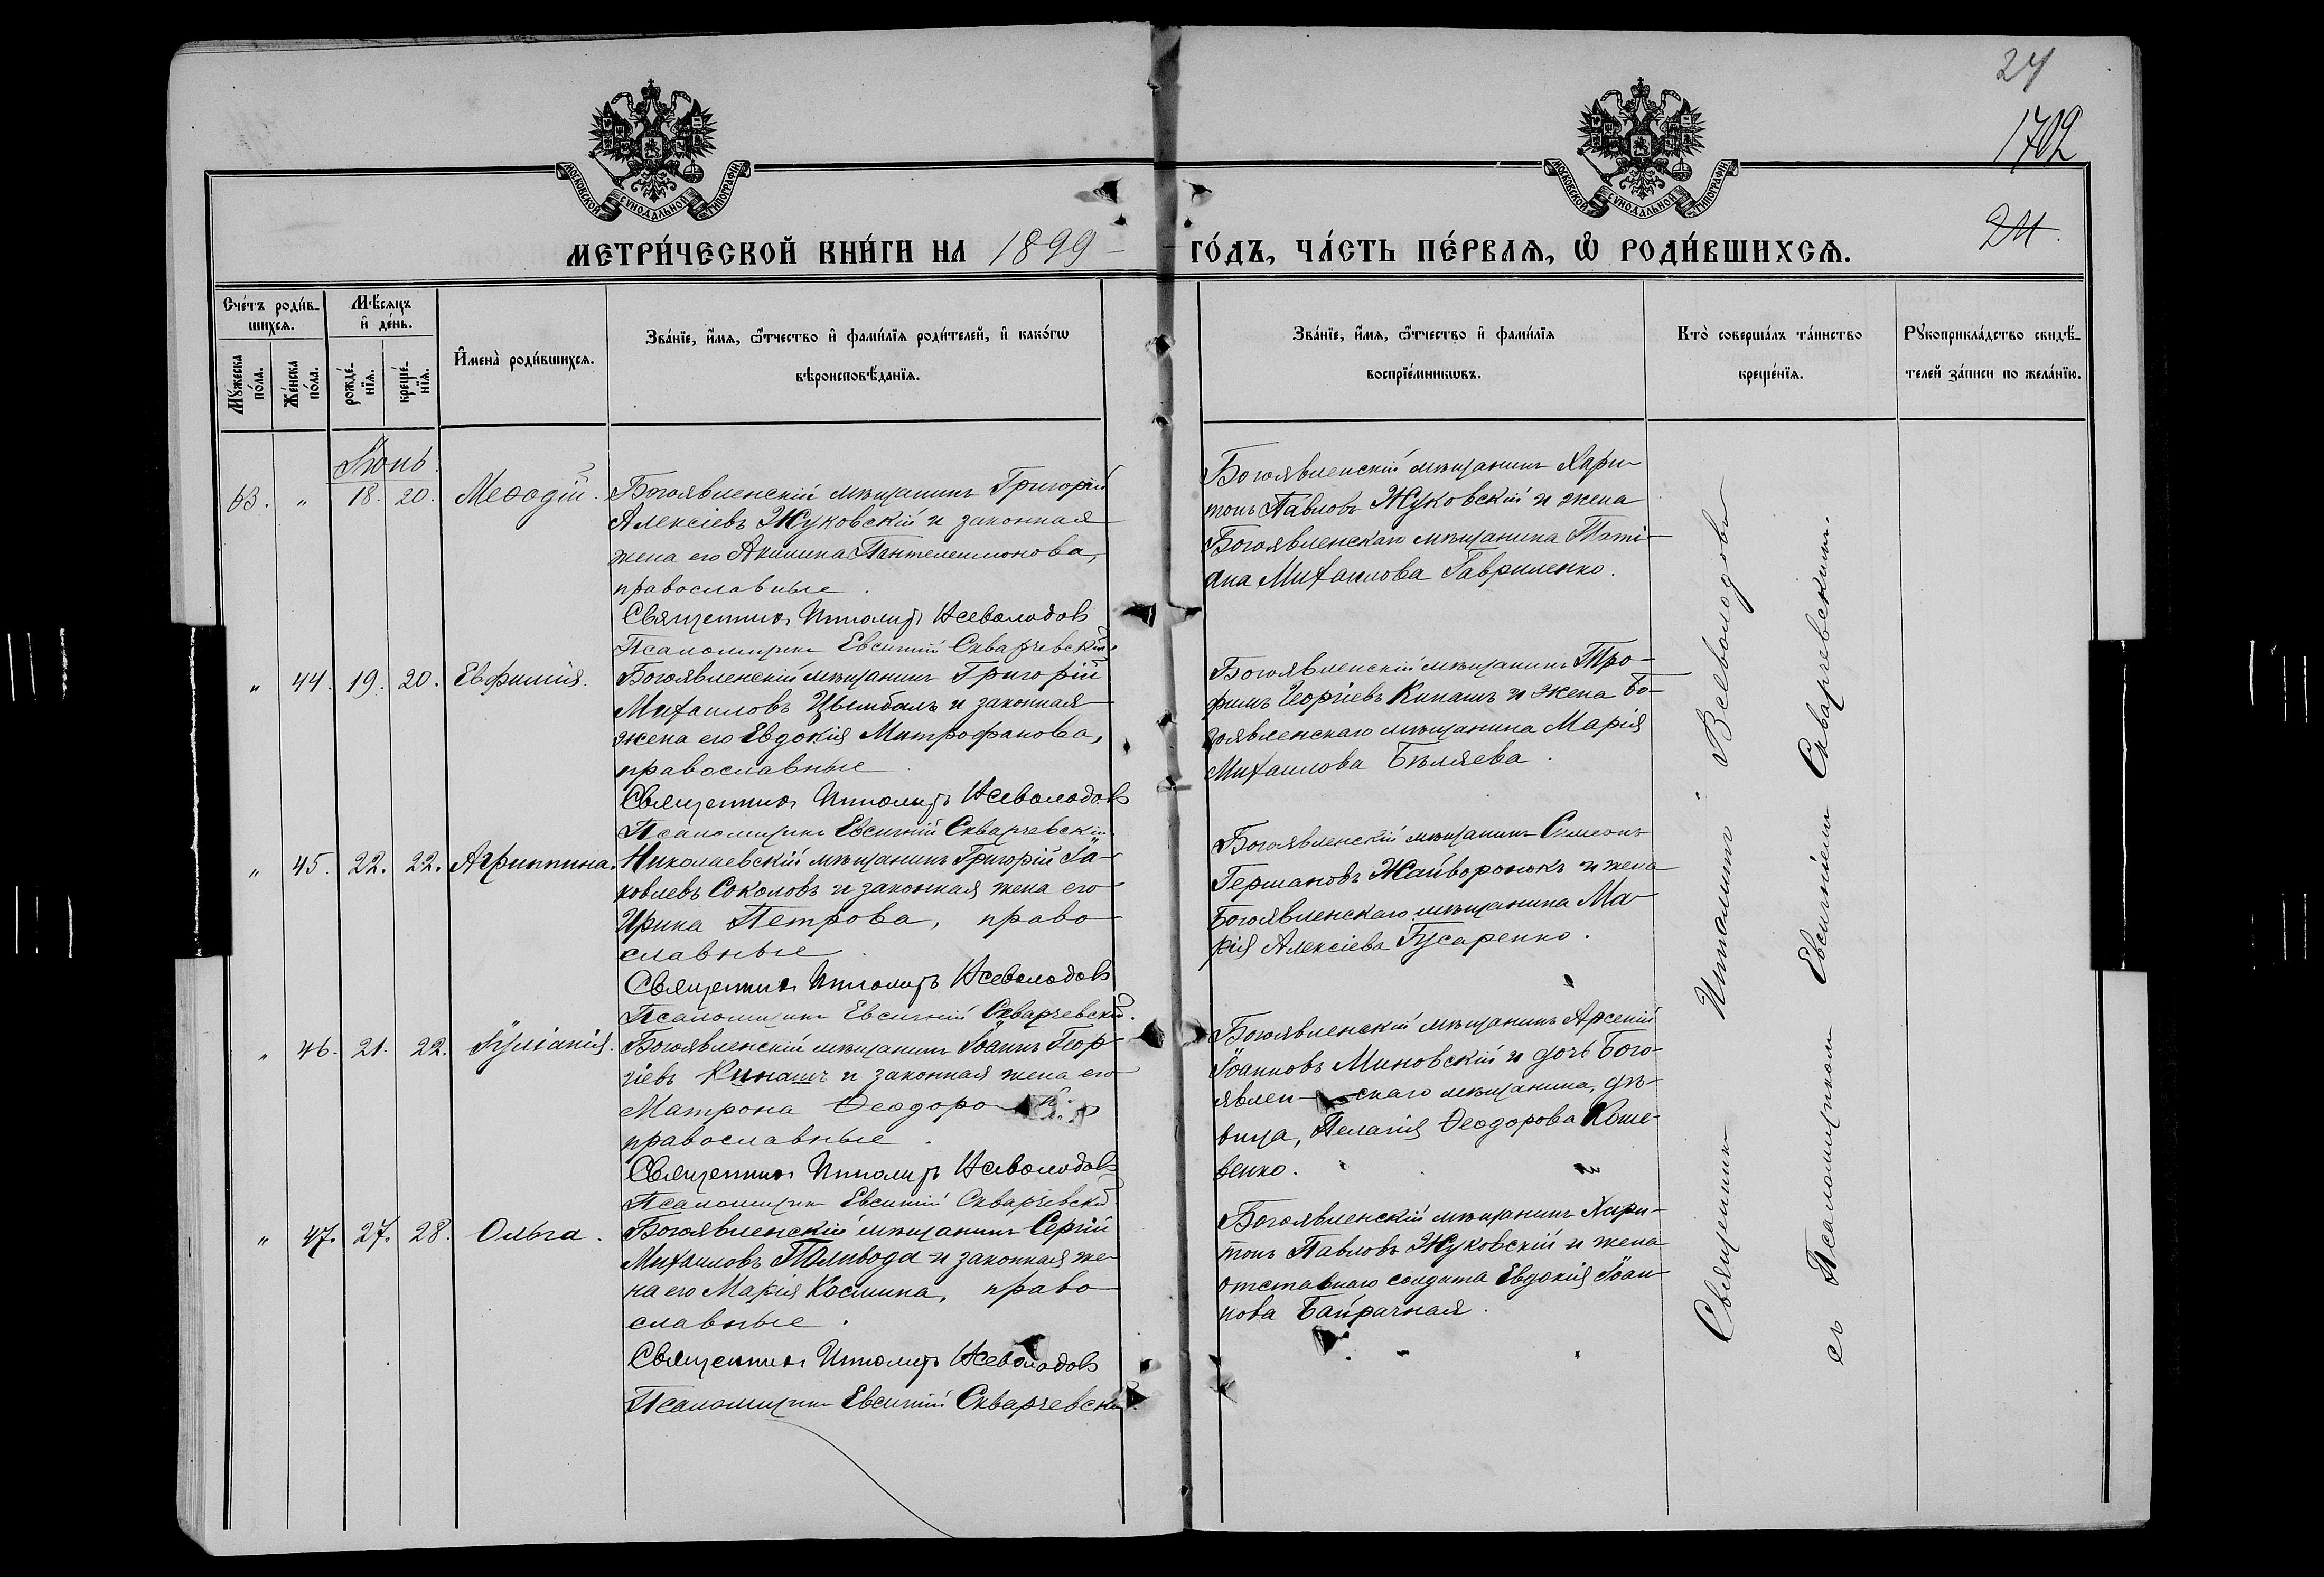 24
1702
24.
МОСКОВСКОЙ СѴНОДАЛЬНОЙ ТИПОГРАФІИ
МОСКОВСКОЙ СѴНОДАЛЬНОЙ ТИПОГРАФІИ
МЕТРИ́ЧЕСКОЙ КНИ́ГИ НА 1899 ГО́ДЪ, ЧА́СТЬ ПЕ́РВАѦ, Ѡ҆ РОДИ́ВШИХСѦ.
Сче́тъ роди́в-
шихсѧ.
Мꙋ́жеска
по́ла.
Же́нска
по́ла.
Мѣ́сѧцъ
и҆ де́нь.
рожде́-
нїѧ.
креще́-
нїѧ.
И҆мена̀ роди́вшихсѧ.
Зва́нїе, и҆́мѧ, ѻ҆́тчество и҆ фамилїѧ роди́телей, и҆ како́гѡ
вѣроисповѣ́данїѧ.
Зва́нїе, и҆́мѧ, ѻ҆́тчество и҆ фами́лїѧ
воспрїе́мникѡвъ.
Кто̀ соверша́лъ та́инство
креще́нїѧ.
Рꙋкоприкла́дство свидѣ́-
телей за́писи по жела́нїю.
Іюнь.
63. " 18. 20. Меѳодій.
Богоявленскій мѣщанинъ Григорій
Алексіевъ Жуковскій и законная
жена его Акилина Пантелеимонова,
православные.
Священникъ Ипполитъ Всеволодовъ
Псаломщикъ Евсигній Скваржевскій.
Богоявленскій мѣщанинъ Хари-
тонъ Павловъ Жуковскій и жена
Богоявленскаго мѣщанина Таті-
ана Михаилова Гавриленко.
" 44. 19. 20. Евфимія.
Богоявленскій мѣщанинъ Григорій
Михаиловъ Цымбалъ и законная
жена его Евдокія Митрофанова,
православные.
Священникъ Ипполитъ Всеволодовъ
Псаломщикъ Евсигній Скваржевскій
Богоявленскій мѣщанинъ Тро-
фимъ Георгіевъ Кинашъ и жена Бо-
гоявленскаго мѣщанина Марія
Михаилова Бѣляева.
" 45. 22. 22. Агриппина.
Николаевскій мѣщанинъ Григорій Іа-
ковлевъ Соколовъ и законная жена его
Ирина Петрова, право-
славные.
Священникъ Ипполитъ Всеволодовъ
Псаломщикъ Евсигній Скваржевскій.
Богоявленскій мѣщанинъ Симеонъ
Германовъ Жайворонокъ и жена
Богоявленскаго мѣщанина Ма-
рія Алексіева Гусаренко.
" 46. 21. 22. Іуліанія.
Богоявленскій мѣщанинъ Іоаннъ Геор-
гіевъ Кинашъ и законная жена его
Матрона
православные.
Священникъ Ипполитъ Всеволодовъ
Псаломщикъ Евсигній Скваржевскій
Богоявленскій мѣщанинъ Арсеній
Іоанновъ Миновскій и дочь Бого-
явлен-скаго мѣщанина, дѣ-
вица, Пелагія Ѳеодорова Коше-
венко.
" 47. 27. 28. Ольга.
Богоявленскій мѣщанинъ Сергій
Михаиловъ Поливода и законная же-
на его Марія Космина, право-
славные.
Священникъ Ипполитъ Всеволодовъ
Псаломщикъ Евсигній Скваржевскій.
Богоявленскій мѣщанинъ Хари-
тонъ Павловъ Жуковскій и жена
отставнаго солдата Евдокія Іоан-
нова Байрачная.
Священникъ Ипполитъ Всеволодовъ
съ Псаломщикомъ Евсигніемъ Скваржевскимъ.